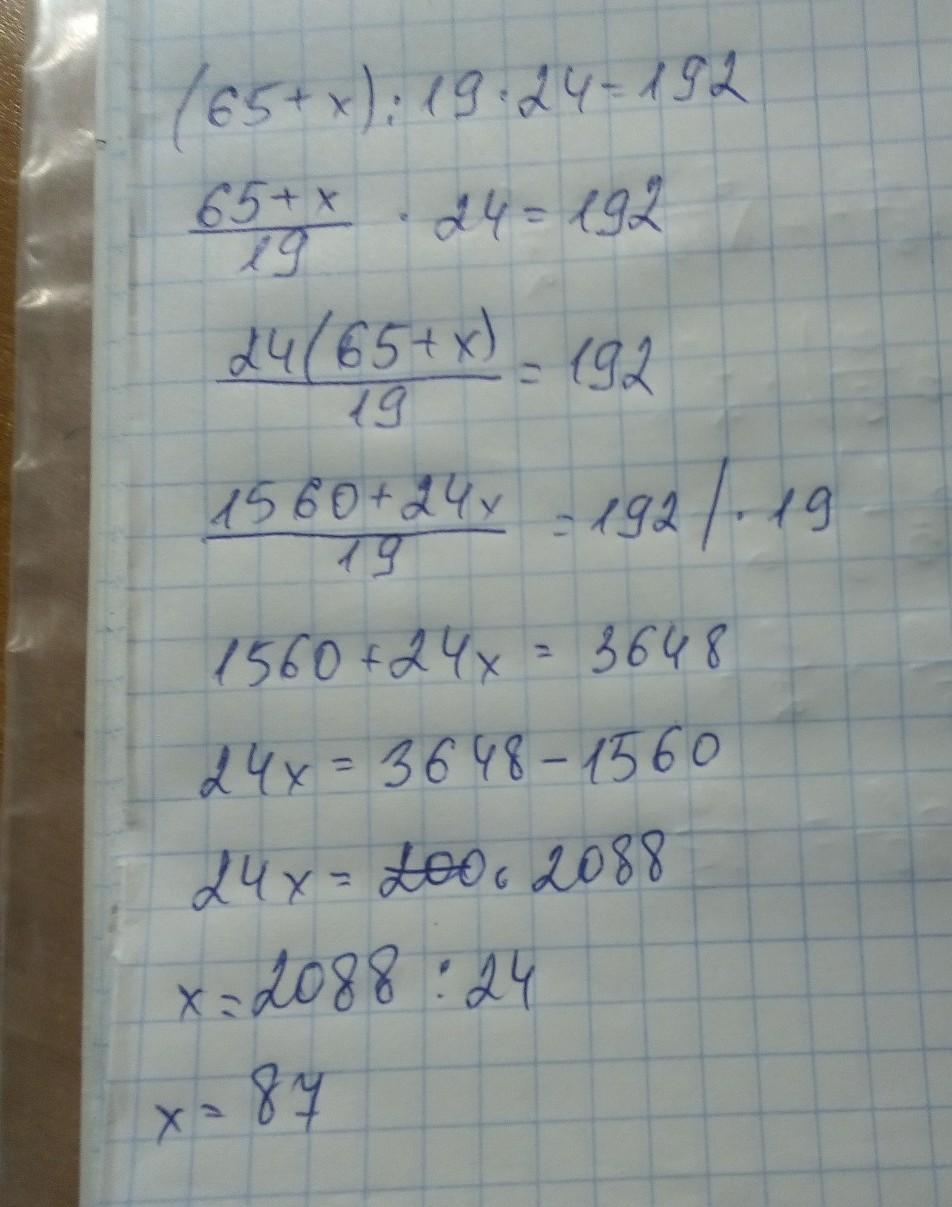 (65+x):19·24=192
65+x/19 · 24=192
24(65+x)/19 = 192
1560+24x/19 =192 /·19
1560+24x = 3648
24x = 3648-1560
24x = 2088
x=2088:24
x= 87